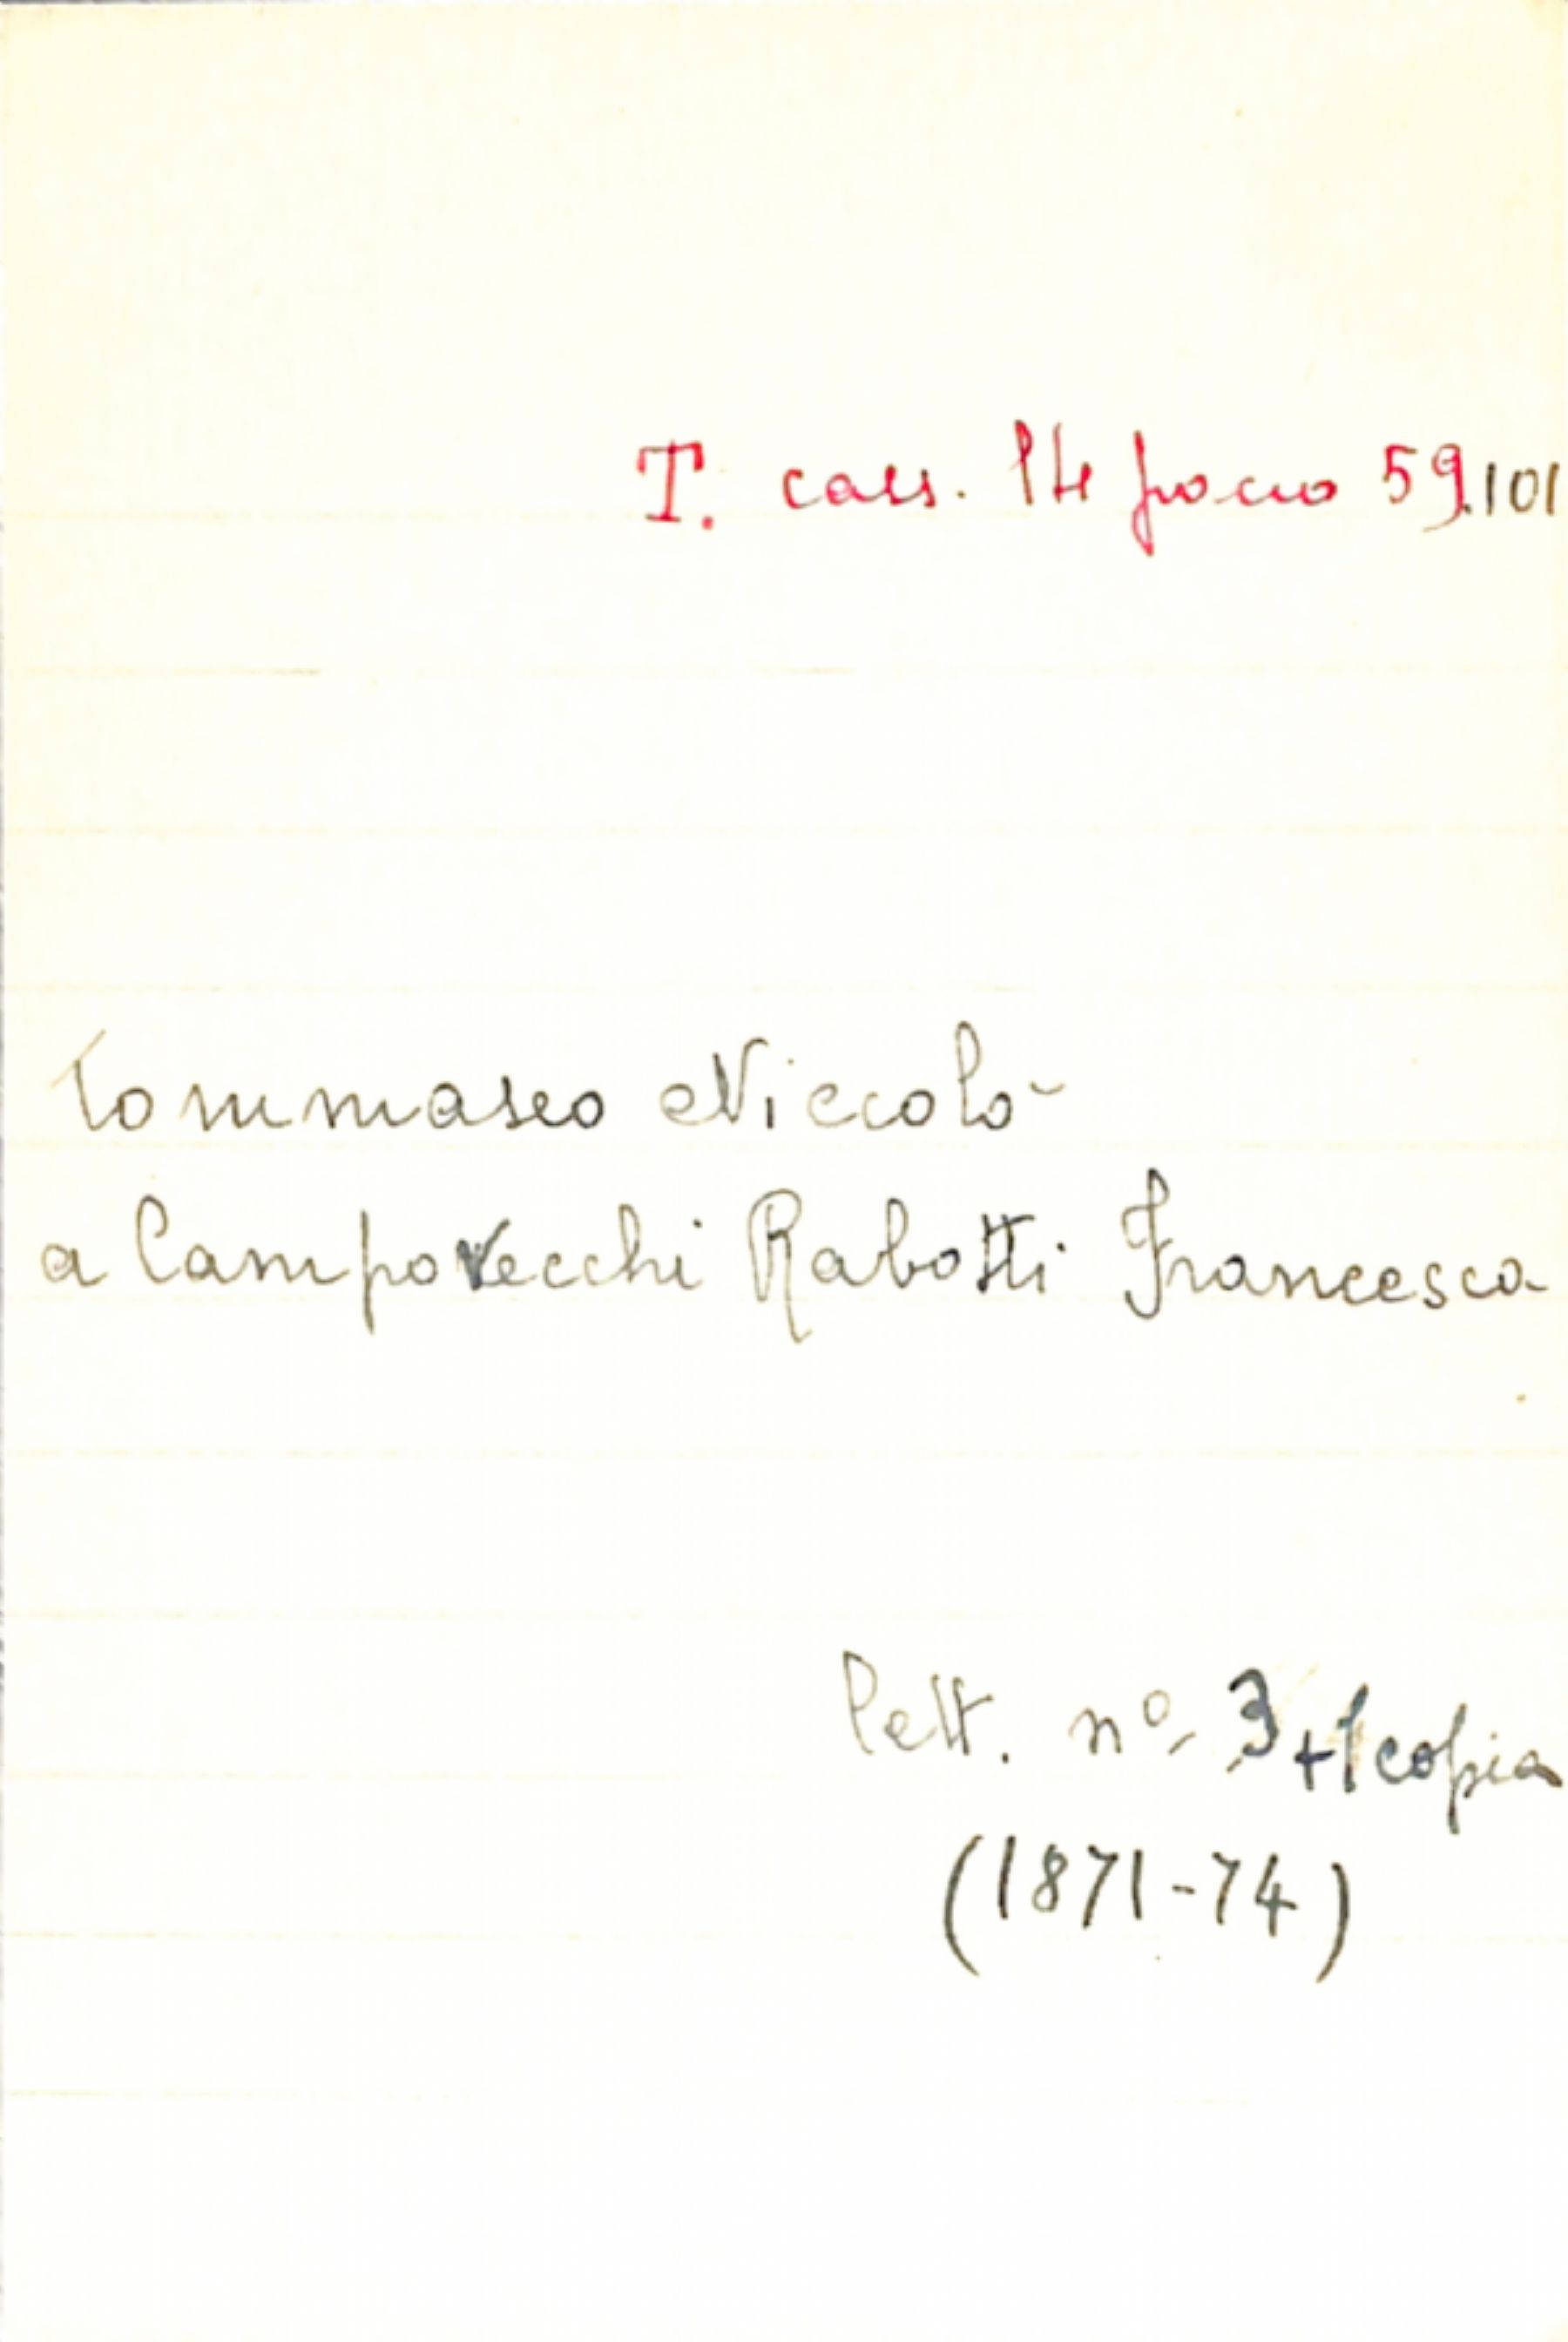 T. cass. 14 pacco 59.101
Tommaseo Niccolò
a Campovecchi Rabotti Francesca
lett. nº 3 + 1 copia
(1871-74)